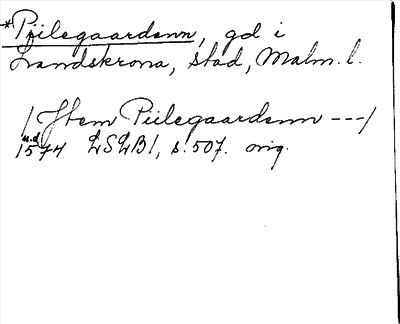 *Piilegaardenn, gd i
Landskrona, stad, Malm. l.
/ Jtem Piilegaardenn ---/
u.d.
1574 LSLB1, s. 507. orig.